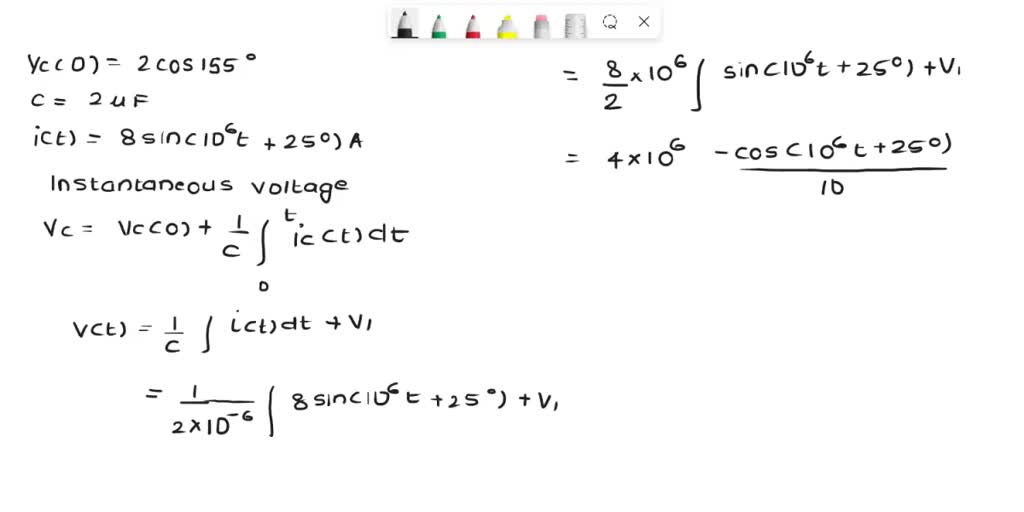 Vc(0) = 2cos155°
C = 2uF
i(t) = 8sin(10⁶t + 25°)A
Instantaneous voltage
Vc = Vc(0) + 1/C ∫₀ᵗ ic(t)dt
V(t) = 1/C ∫ i(t)dt + V₁
= 1/(2×10⁻⁶) ∫ 8sin(10⁶t + 25°) + V₁
= 8/2 × 10⁶ ∫ sin(10⁶t + 25°) + V₁
= 4×10⁶ -cos(10⁶t + 25°)/10